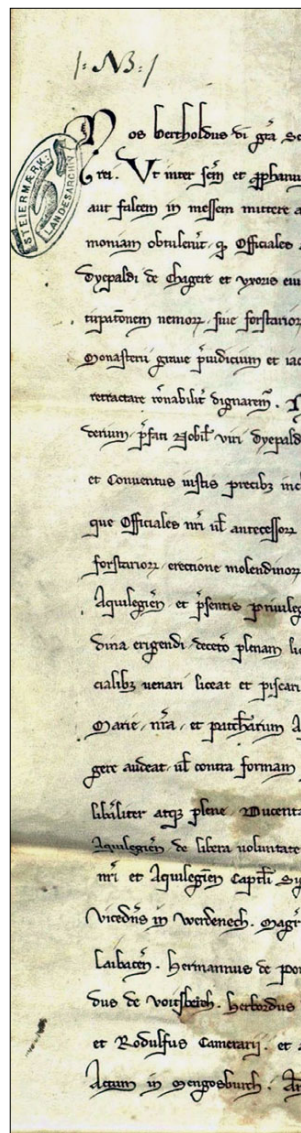 |: NB: |
STEIERMÆRK: LANDESARCHIV
Nos bertholdus di grā
rei. Ut inter scm̄ et pphanu
aut falcem in messem mittere
moniam obtulerūt q Officiales
Dyepaldi de Chagere et uxoris eiu
tirpatōnem nemorꝝ siue forstariorꝝ
Monasterii
retractare rōnabilit dignarem̄.
derium p̄fati Nobil uiri Dyepald
et Conuentus iustis precibꝫ incl
que Officiales nr̄i ul antecessorꝝ
forstariorꝝ erectione molendinorꝝ
Aquilegien̄ et p̄sentis priuileg
dina erigendi decetō plenam lic
cialibꝫ uenari liceat et piscari
Marie nr̄a et patrharum A
gere audeat ul contra formam
libālitter atqꝫ plene Ducenta
Aquilegien̄ de libera uoluntate
nr̄i et Aquilegien̄ Captli
Vicedn̄s in Werdenech. Magr̄
Laibacen̄. hermannus de por
dus de Voitsberch. herbordus
et Rodulfus Camerarij. et
Actum in Mengosburch.